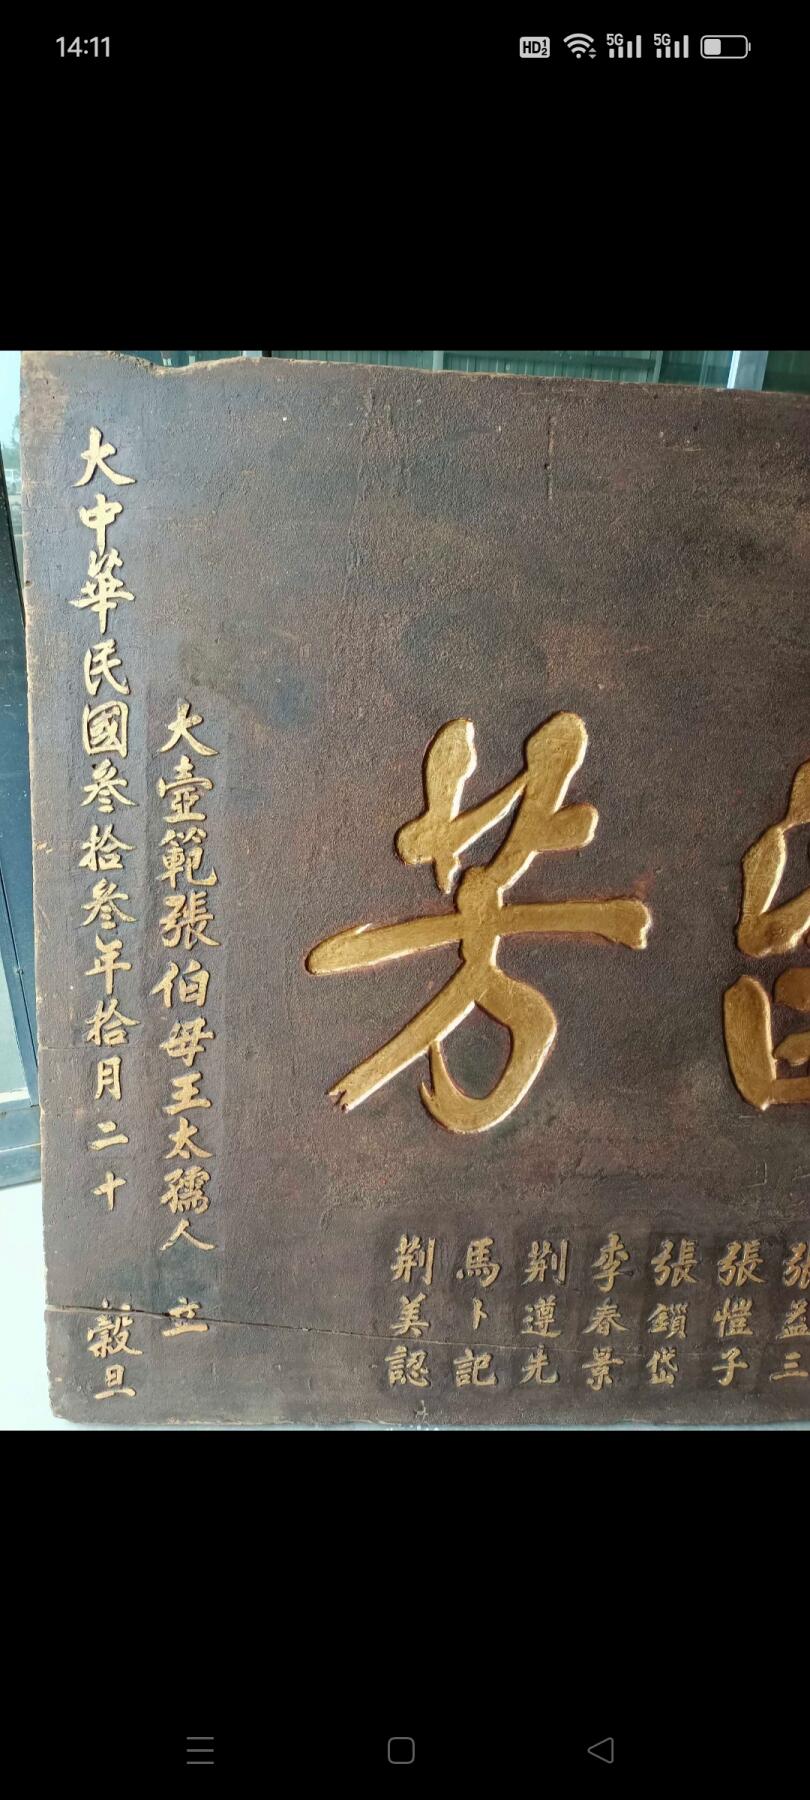 14:11
HD 1 2
5G
5G
芳
張益三
張愷子
張鎖岱
李春景
荆遵先
馬卜記
荆美認
大壼範張伯母王太孺人 立
大中華民國叁拾叁年拾月二十 穀旦